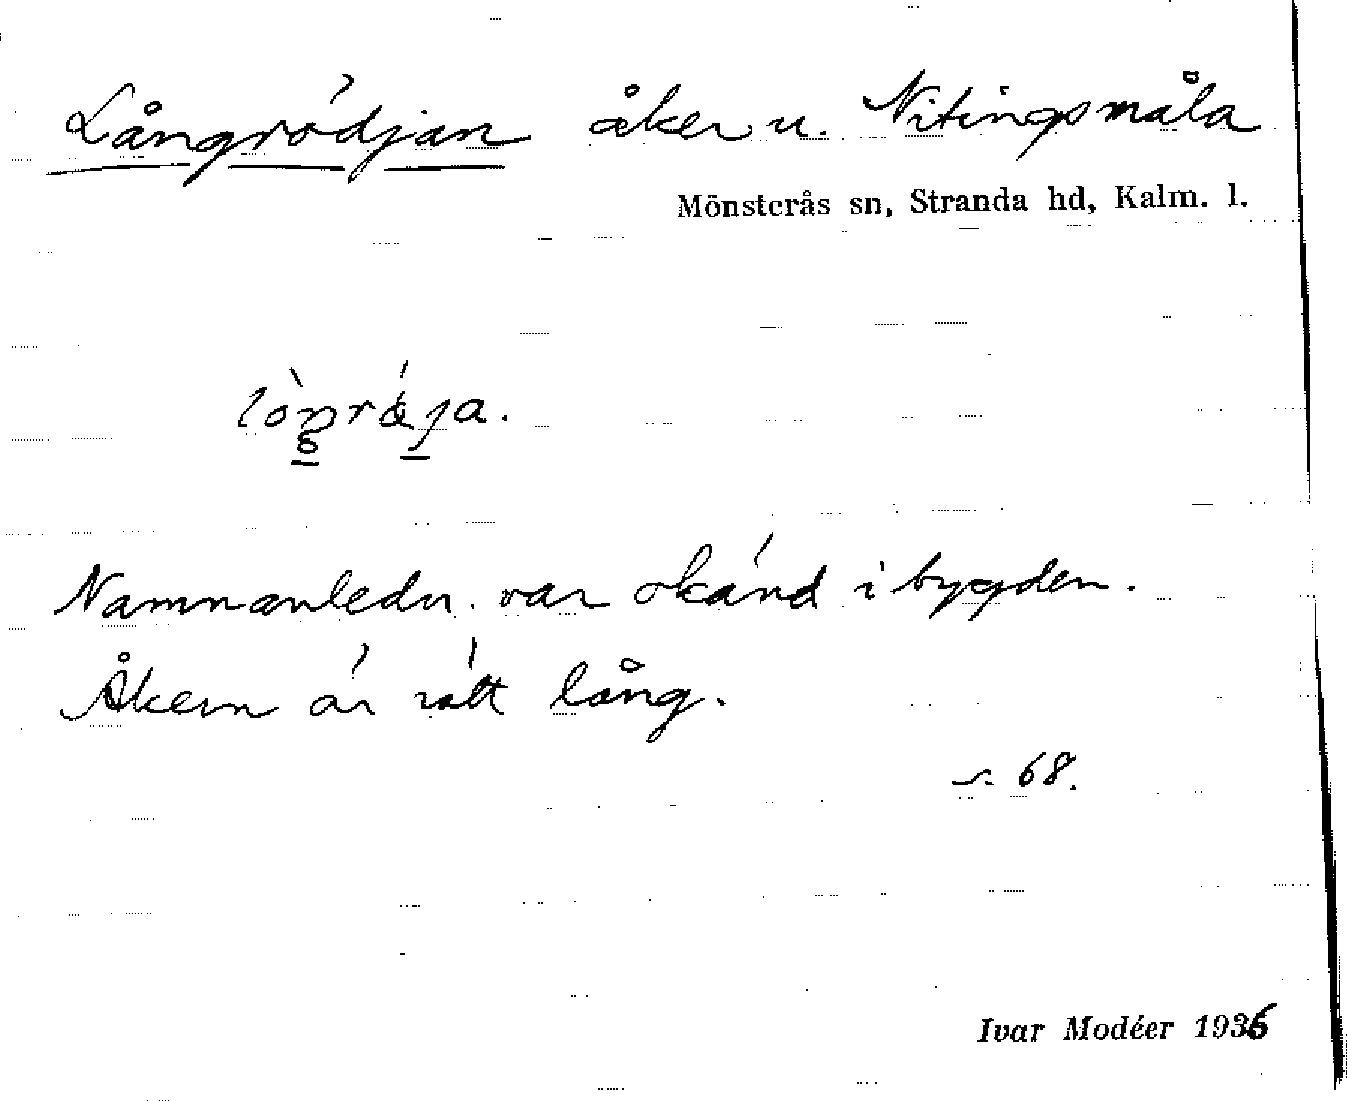 Långrödjan åker u. Nitingsmåla
Mönsterås sn, Stranda hd, Kalm. l.
Namnanledn. var okänd i bygden.
Åkern är rätt lång.
s. 68.
Ivar Modéer 1936